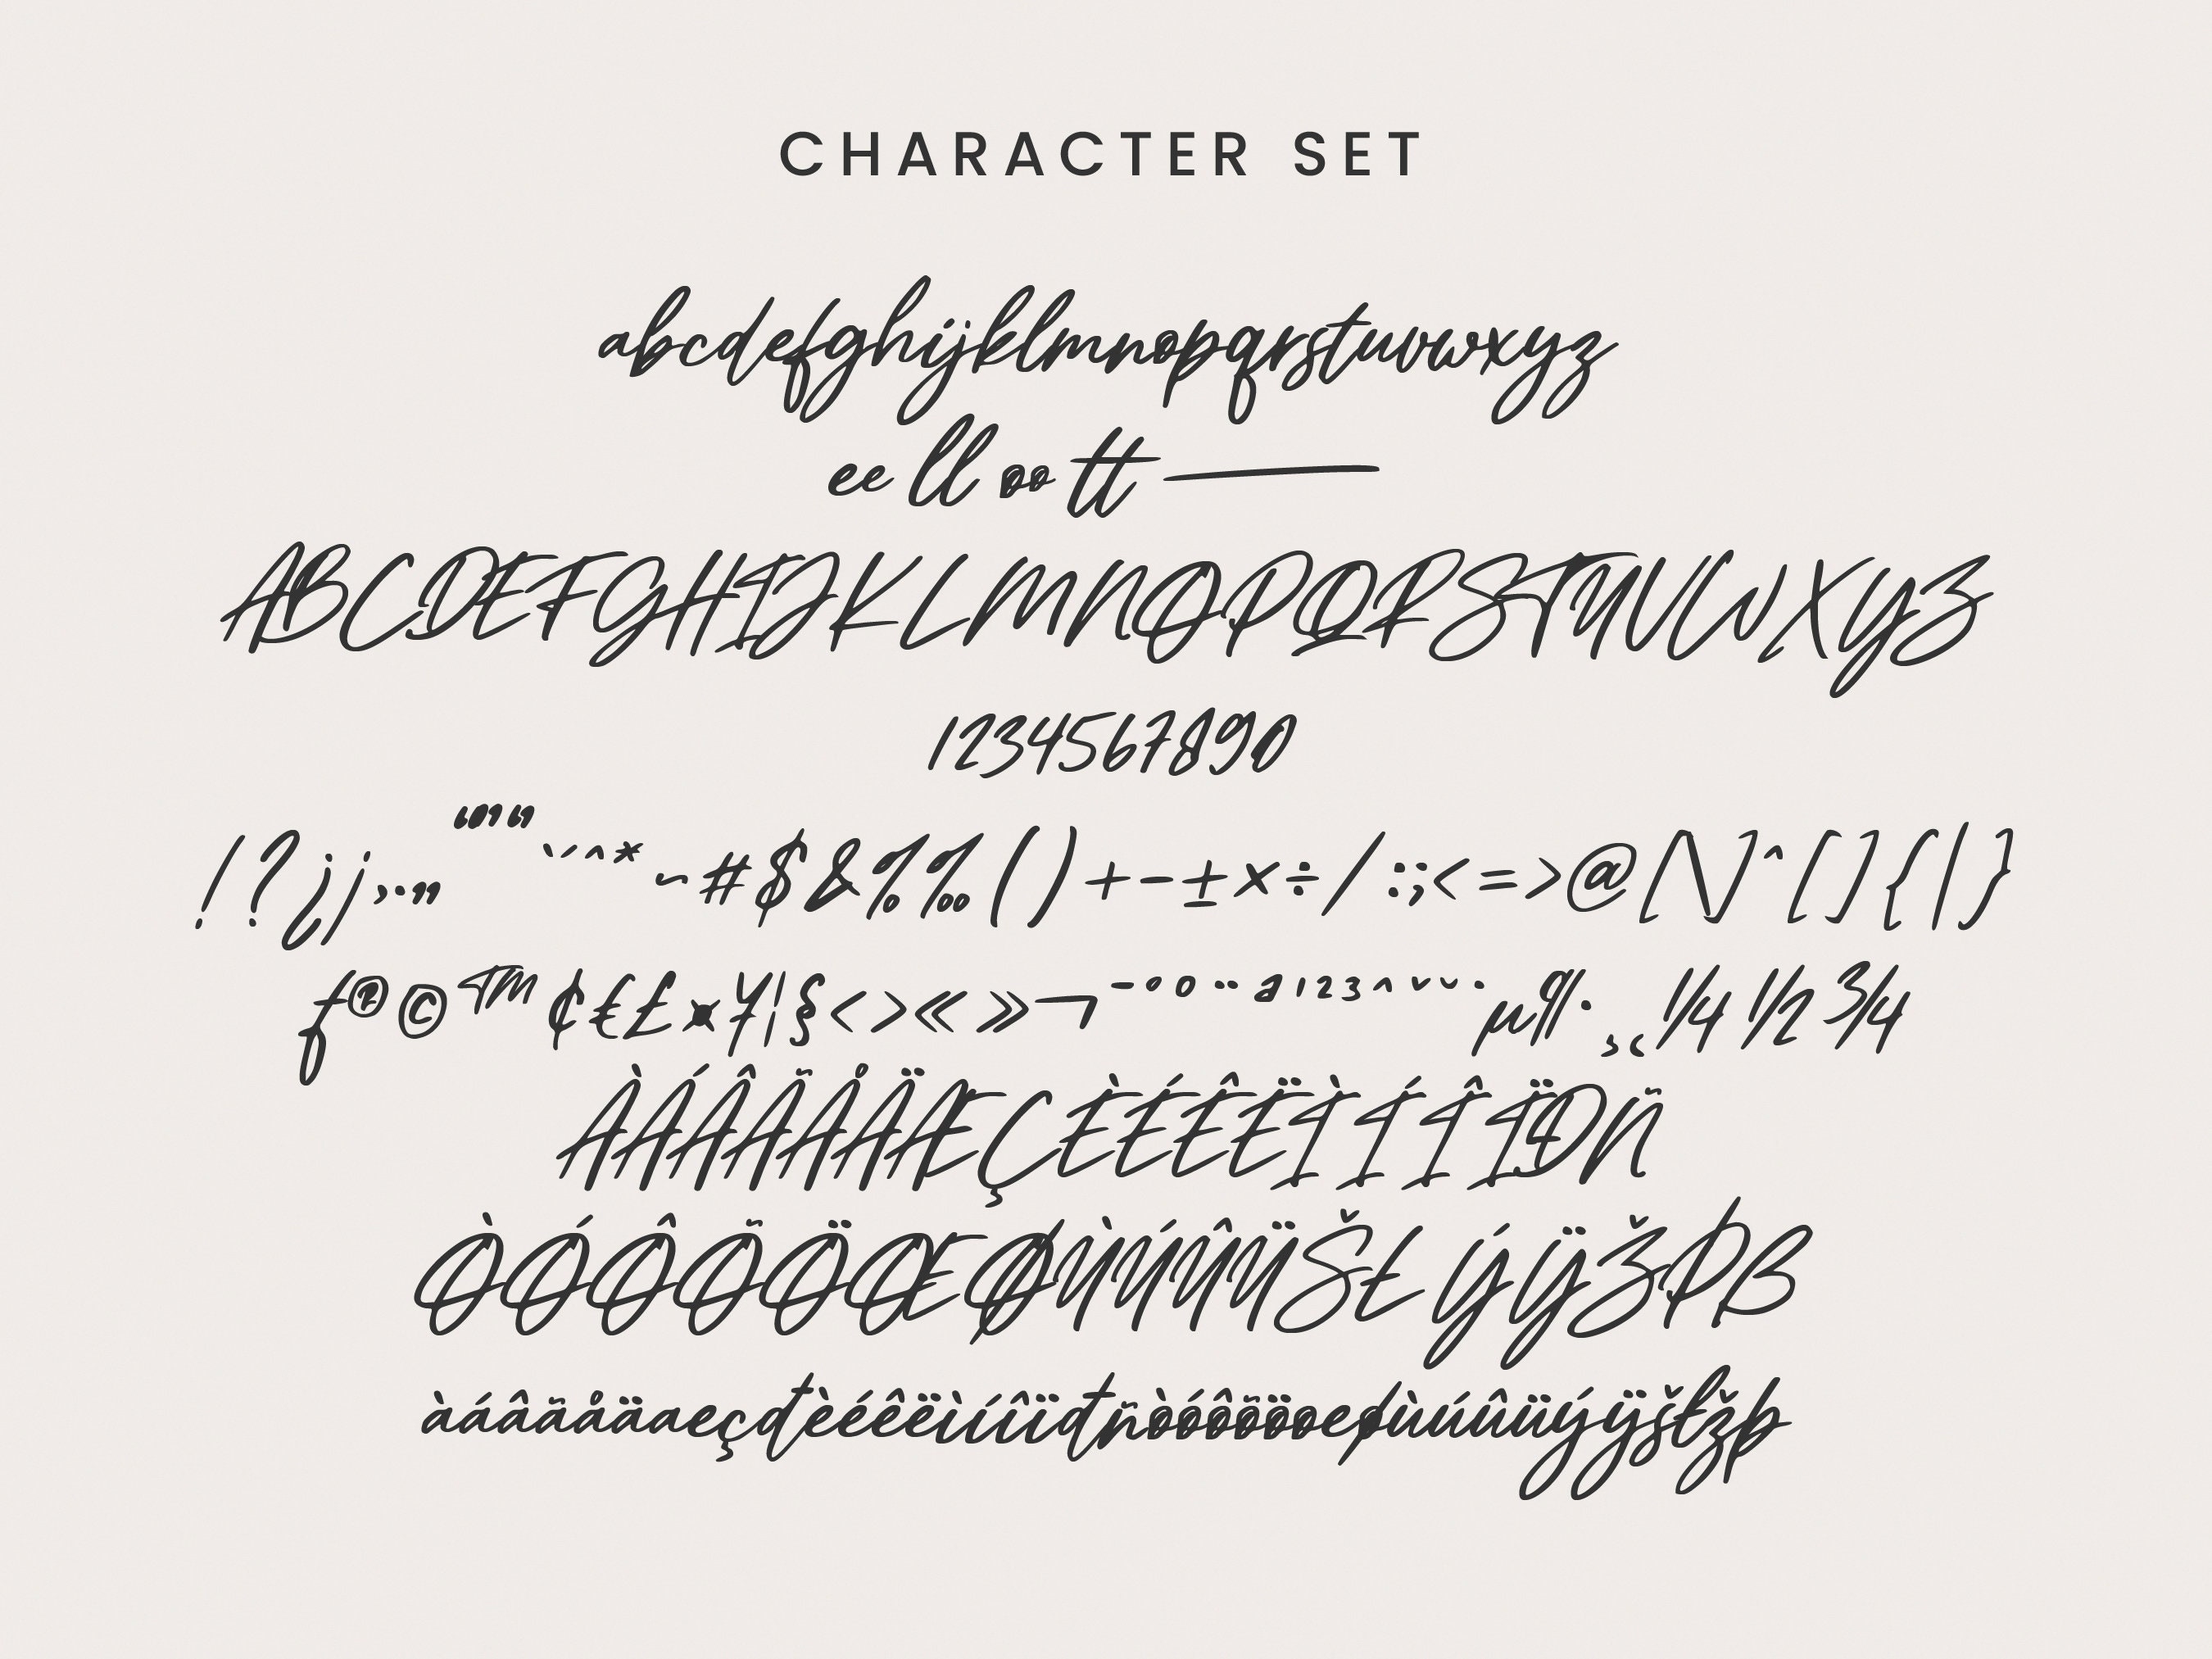 CHARACTER SET
abcdefghijklmnopqrstuvwxyz
ee ll oo tt
ABCDEFGHIJKLMNOPQRSTUVWXYZ
1234567890
!?¿¡,·.„ “”‘’ `´^*~#$&%‰()+-±×÷/:;<=>@[\]^[]{|}
ƒ®©™¢€£¤¥¦§‹›«»¬¯°º¨ª¹²³ˆˇ˘˙µ¶·¸˛¼½¾
ÀÁÂÃÅÄÆÇÈÉÊËÌÍÎÏÐÑ
ÒÓÔÕÖŒØÙÚÛÜŠŁÝŸŽÞB
àáâãåäæçđèéêëìíîïðñòóôõöœøùúûüýÿšłžþ